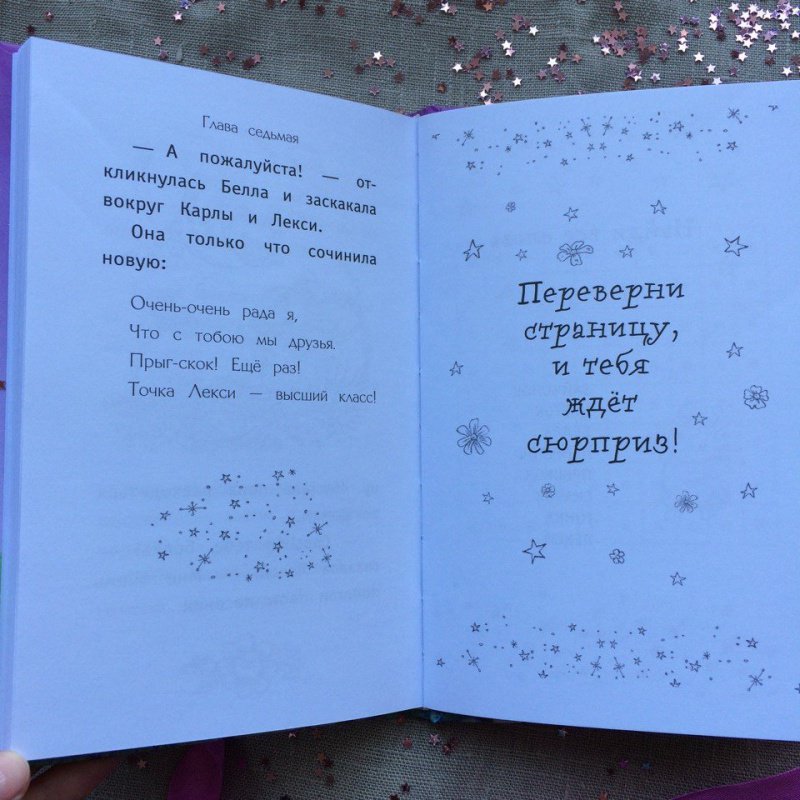 Глава седьмая
— А пожалуйста! — от-
кликнулась Белла и заскакала
вокруг Карлы и Лекси.
Она только что сочинила
новую:
Очень-очень рада я,
Что с тобою мы друзья.
Прыг-скок! Ещё раз!
Точка Лекси — высший класс!
Переверни
страницу,
и тебя
ждёт
сюрприз!